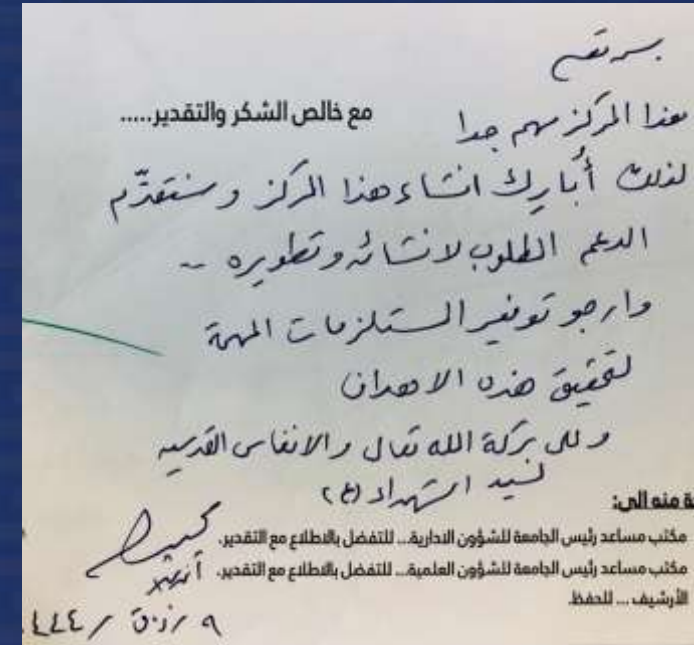 بسمه تعالى
مع خالص الشكر والتقدير.....
هذا المركز مهم جدا
لذلك أُبارك انشاء هذا المركز وسنقدّم
الدعم المطلوب لانشائه وتطويره ~
وارجو توفير المستلزمات المهمة
لتحقيق هذه الاهداف
وعلى بركة الله تعالى والانفاس القدسيه
لسيد الشهداء (ع)
ة منه الى:
مكتب مساعد رئيس الجامعة للشؤون الادارية... للتفضل بالاطلاع مع التقدير.
مكتب مساعد رئيس الجامعة للشؤون العلمية... للتفضل بالاطلاع مع التقدير.
الأرشيف ... للحفظ.